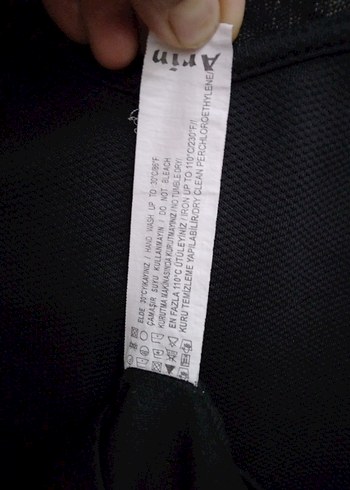 Arin
ELDE 30°C YIKAYINIZ / HAND WASH UP TO 30°C/86°F
ÇAMAŞIR SUYU KULLANMAYIN / DO NOT BLEACH
KURUTMA MAKİNASINDA KURUTMAYINIZ / NO TUMBLE DRY/
EN FAZLA 110°C ÜTÜLEYİNİZ / IRON UP TO 110°C/230°F/
KURU TEMİZLEME YAPILABİLİR/DRY CLEAN PERCHLOROETHYLENE/